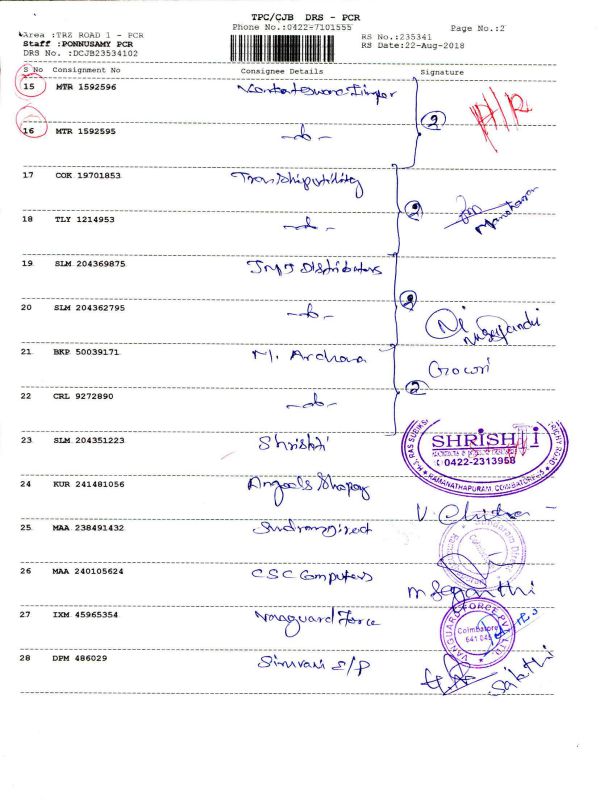 TPC/CJB DRS - PCR
Phone No.:0422-7101555
Page No.:2
Area :TRZ ROAD 1 - PCR
Staff :PONNUSAMY PCR
DRS No. :DCJB23534102
RS No.:235341
RS Date:22-Aug-2018
S No Consignment No Consignee Details Signature
15 MTR 1592596
16 MTR 1592595
2
17 COK 19701853
18 TLY 1214953
2 Manoharan
19 SLM 204369875 JMJ Distributors
20 SLM 204362795
2
21 BKP 50039171 M. Archana Gowri
22 CRL 9272890
2
23 SLM 204351223 Shrishti
SHRISHTI
0422-2313958
RAMANATHAPURAM, COIMBATORE-45
24 KUR 241481056 Angels Shapay
V. Chitra
25 MAA 238491432 Sundram Direct
26 MAA 240105624 CSC Computers
27 IXM 45965354 Vanguard Force
VANGUARD FORCE PVT. LTD.
Coimbatore
641 045
28 DPM 486029 Siruvani S/P
Sakthi